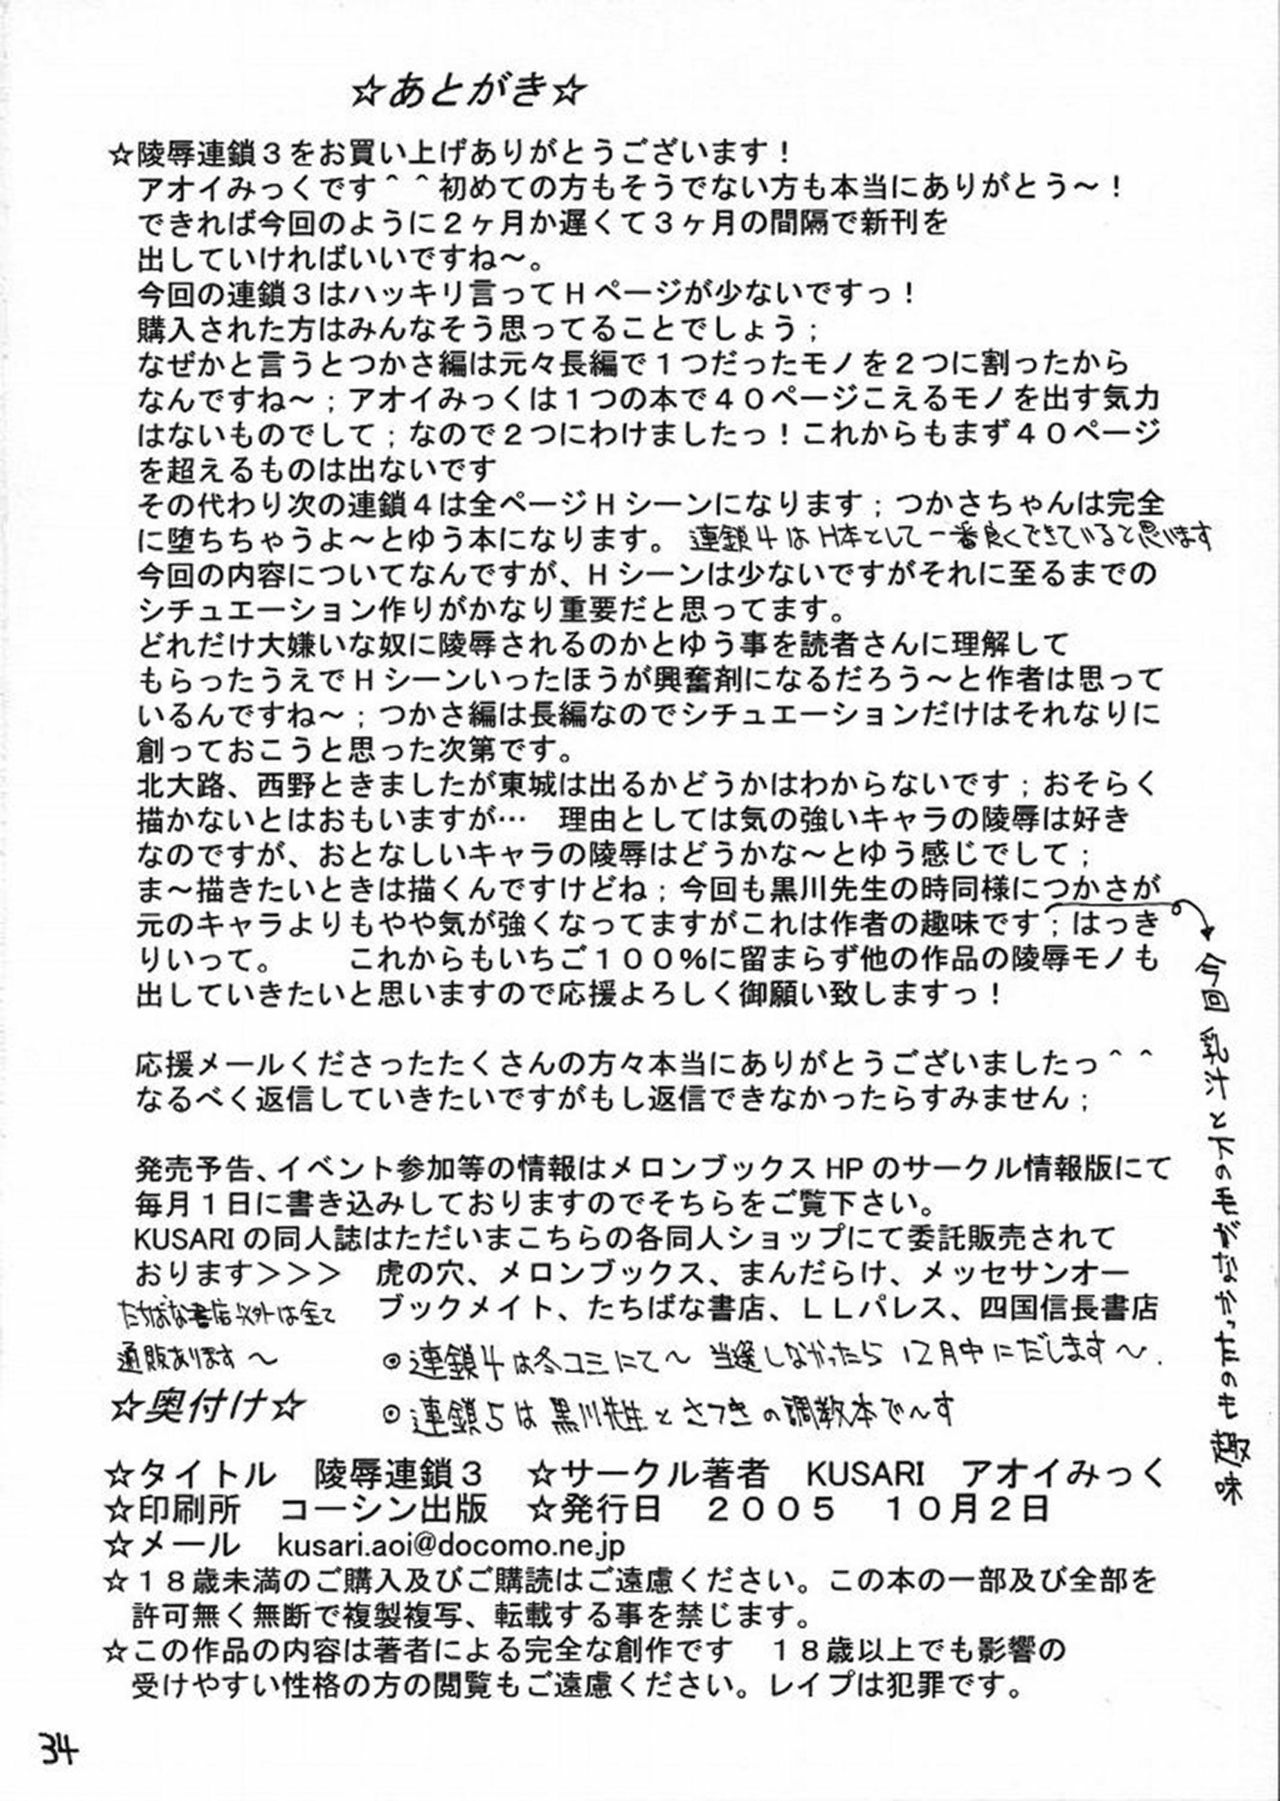 ☆あとがき☆
☆陵辱連鎖３をお買い上げありがとうございます！
アオイみっくです＾＾初めての方もそうでない方も本当にありがとう～！
できれば今回のように２ヶ月か遅くて３ヶ月の間隔で新刊を
出していければいいですね～。
今回の連鎖３はハッキリ言ってＨページが少ないですっ！
購入された方はみんなそう思ってることでしょう；
なぜかと言うとつかさ編は元々長編で１つだったモノを２つに割ったから
なんですね～；アオイみっくは１つの本で４０ページこえるモノを出す気力
はないものでして；なので２つにわけましたっ！これからもまず４０ページ
を超えるものは出ないです
その代わり次の連鎖４は全ページＨシーンになります；つかさちゃんは完全
に堕ちちゃうよ～とゆう本になります。 連鎖4はH本として一番良くできていると思います
今回の内容についてなんですが、Ｈシーンは少ないですがそれに至るまでの
シチュエーション作りがかなり重要だと思ってます。
どれだけ大嫌いな奴に陵辱されるのかとゆう事を読者さんに理解して
もらったうえでＨシーンいったほうが興奮剤になるだろう～と作者は思って
いるんですね～；つかさ編は長編なのでシチュエーションだけはそれなりに
創っておこうと思った次第です。
北大路、西野ときましたが東城は出るかどうかはわからないです；おそらく
描かないとはおもいますが…　理由としては気の強いキャラの陵辱は好き
なのですが、おとなしいキャラの陵辱はどうかな～とゆう感じでして；
ま～描きたいときは描くんですけどね；今回も黒川先生の時同様につかさが
元のキャラよりもやや気が強くなってますがこれは作者の趣味です；はっき
りいって。　　これからもいちご１００％に留まらず他の作品の陵辱モノも
出していきたいと思いますので応援よろしく御願い致しますっ！
今回乳汁と下の毛がなかったのも趣味
応援メールくださったたくさんの方々本当にありがとうございましたっ＾＾
なるべく返信していきたいですがもし返信できなかったらすみません；
発売予告、イベント参加等の情報はメロンブックスHPのサークル情報版にて
毎月１日に書き込みしておりますのでそちらをご覧下さい。
KUSARIの同人誌はただいまこちらの各同人ショップにて委託販売されて
おります＞＞＞　虎の穴、メロンブックス、まんだらけ、メッセサンオー
ブックメイト、たちばな書店、ＬＬパレス、四国信長書店
たちばな書店以外は全て
通販あります～
◎連鎖4は冬コミにて～ 当選しなかったら12月中にだします～.
◎連鎖5は黒川先生とさつきの調教本で～す
☆奥付け☆
☆タイトル　陵辱連鎖３　☆サークル著者　KUSARI　アオイみっく
☆印刷所　コーシン出版　☆発行日　２００５　１０月２日
☆メール　kusari.aoi@docomo.ne.jp
☆１８歳未満のご購入及びご購読はご遠慮ください。この本の一部及び全部を
許可無く無断で複製複写、転載する事を禁じます。
☆この作品の内容は著者による完全な創作です　１８歳以上でも影響の
受けやすい性格の方の閲覧もご遠慮ください。レイプは犯罪です。
34